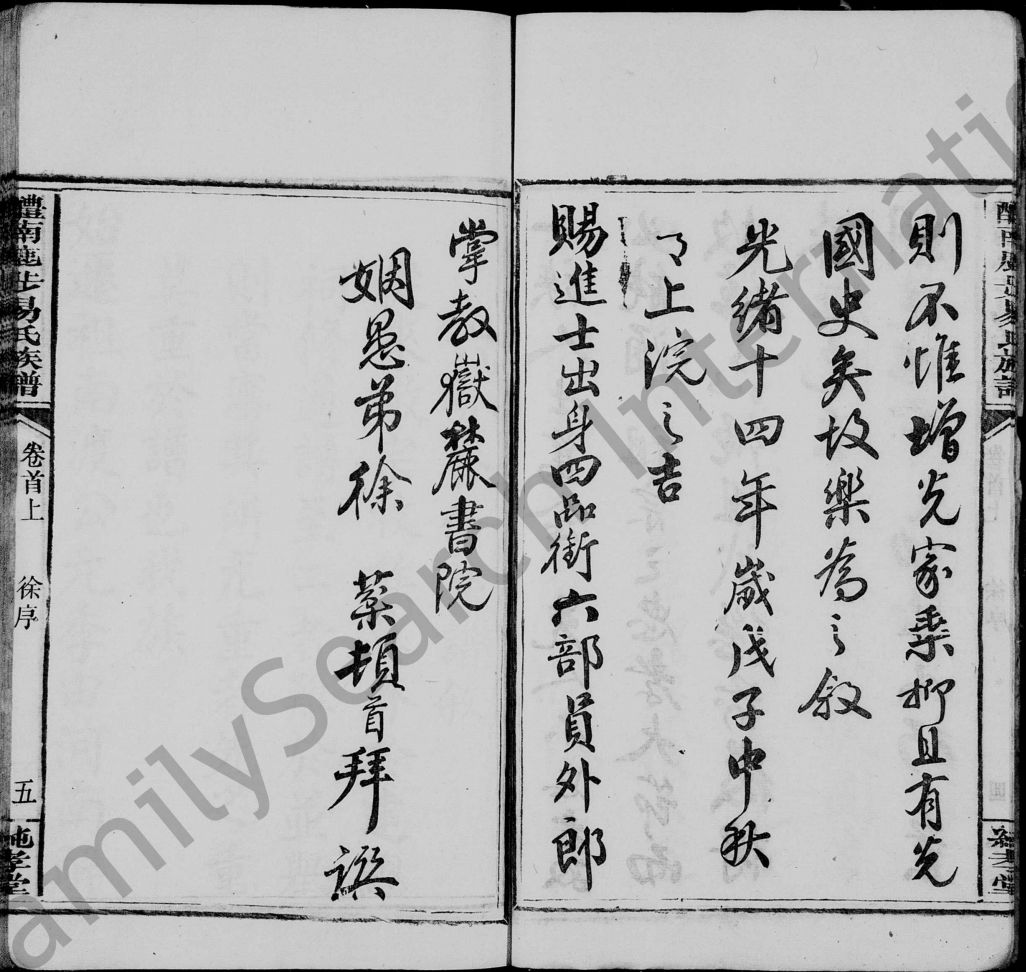 則不惟增光家乘抑且有光
國史矣故樂為之敘
光緒十四年歲戊子中秋
月上浣之吉
賜進士出身四品銜六部員外郎
掌教嶽麓書院
姻愚弟徐 棻頓首拜譔
醴南 易氏族譜
卷首上 徐序
五
純孝堂
FamilySearch International